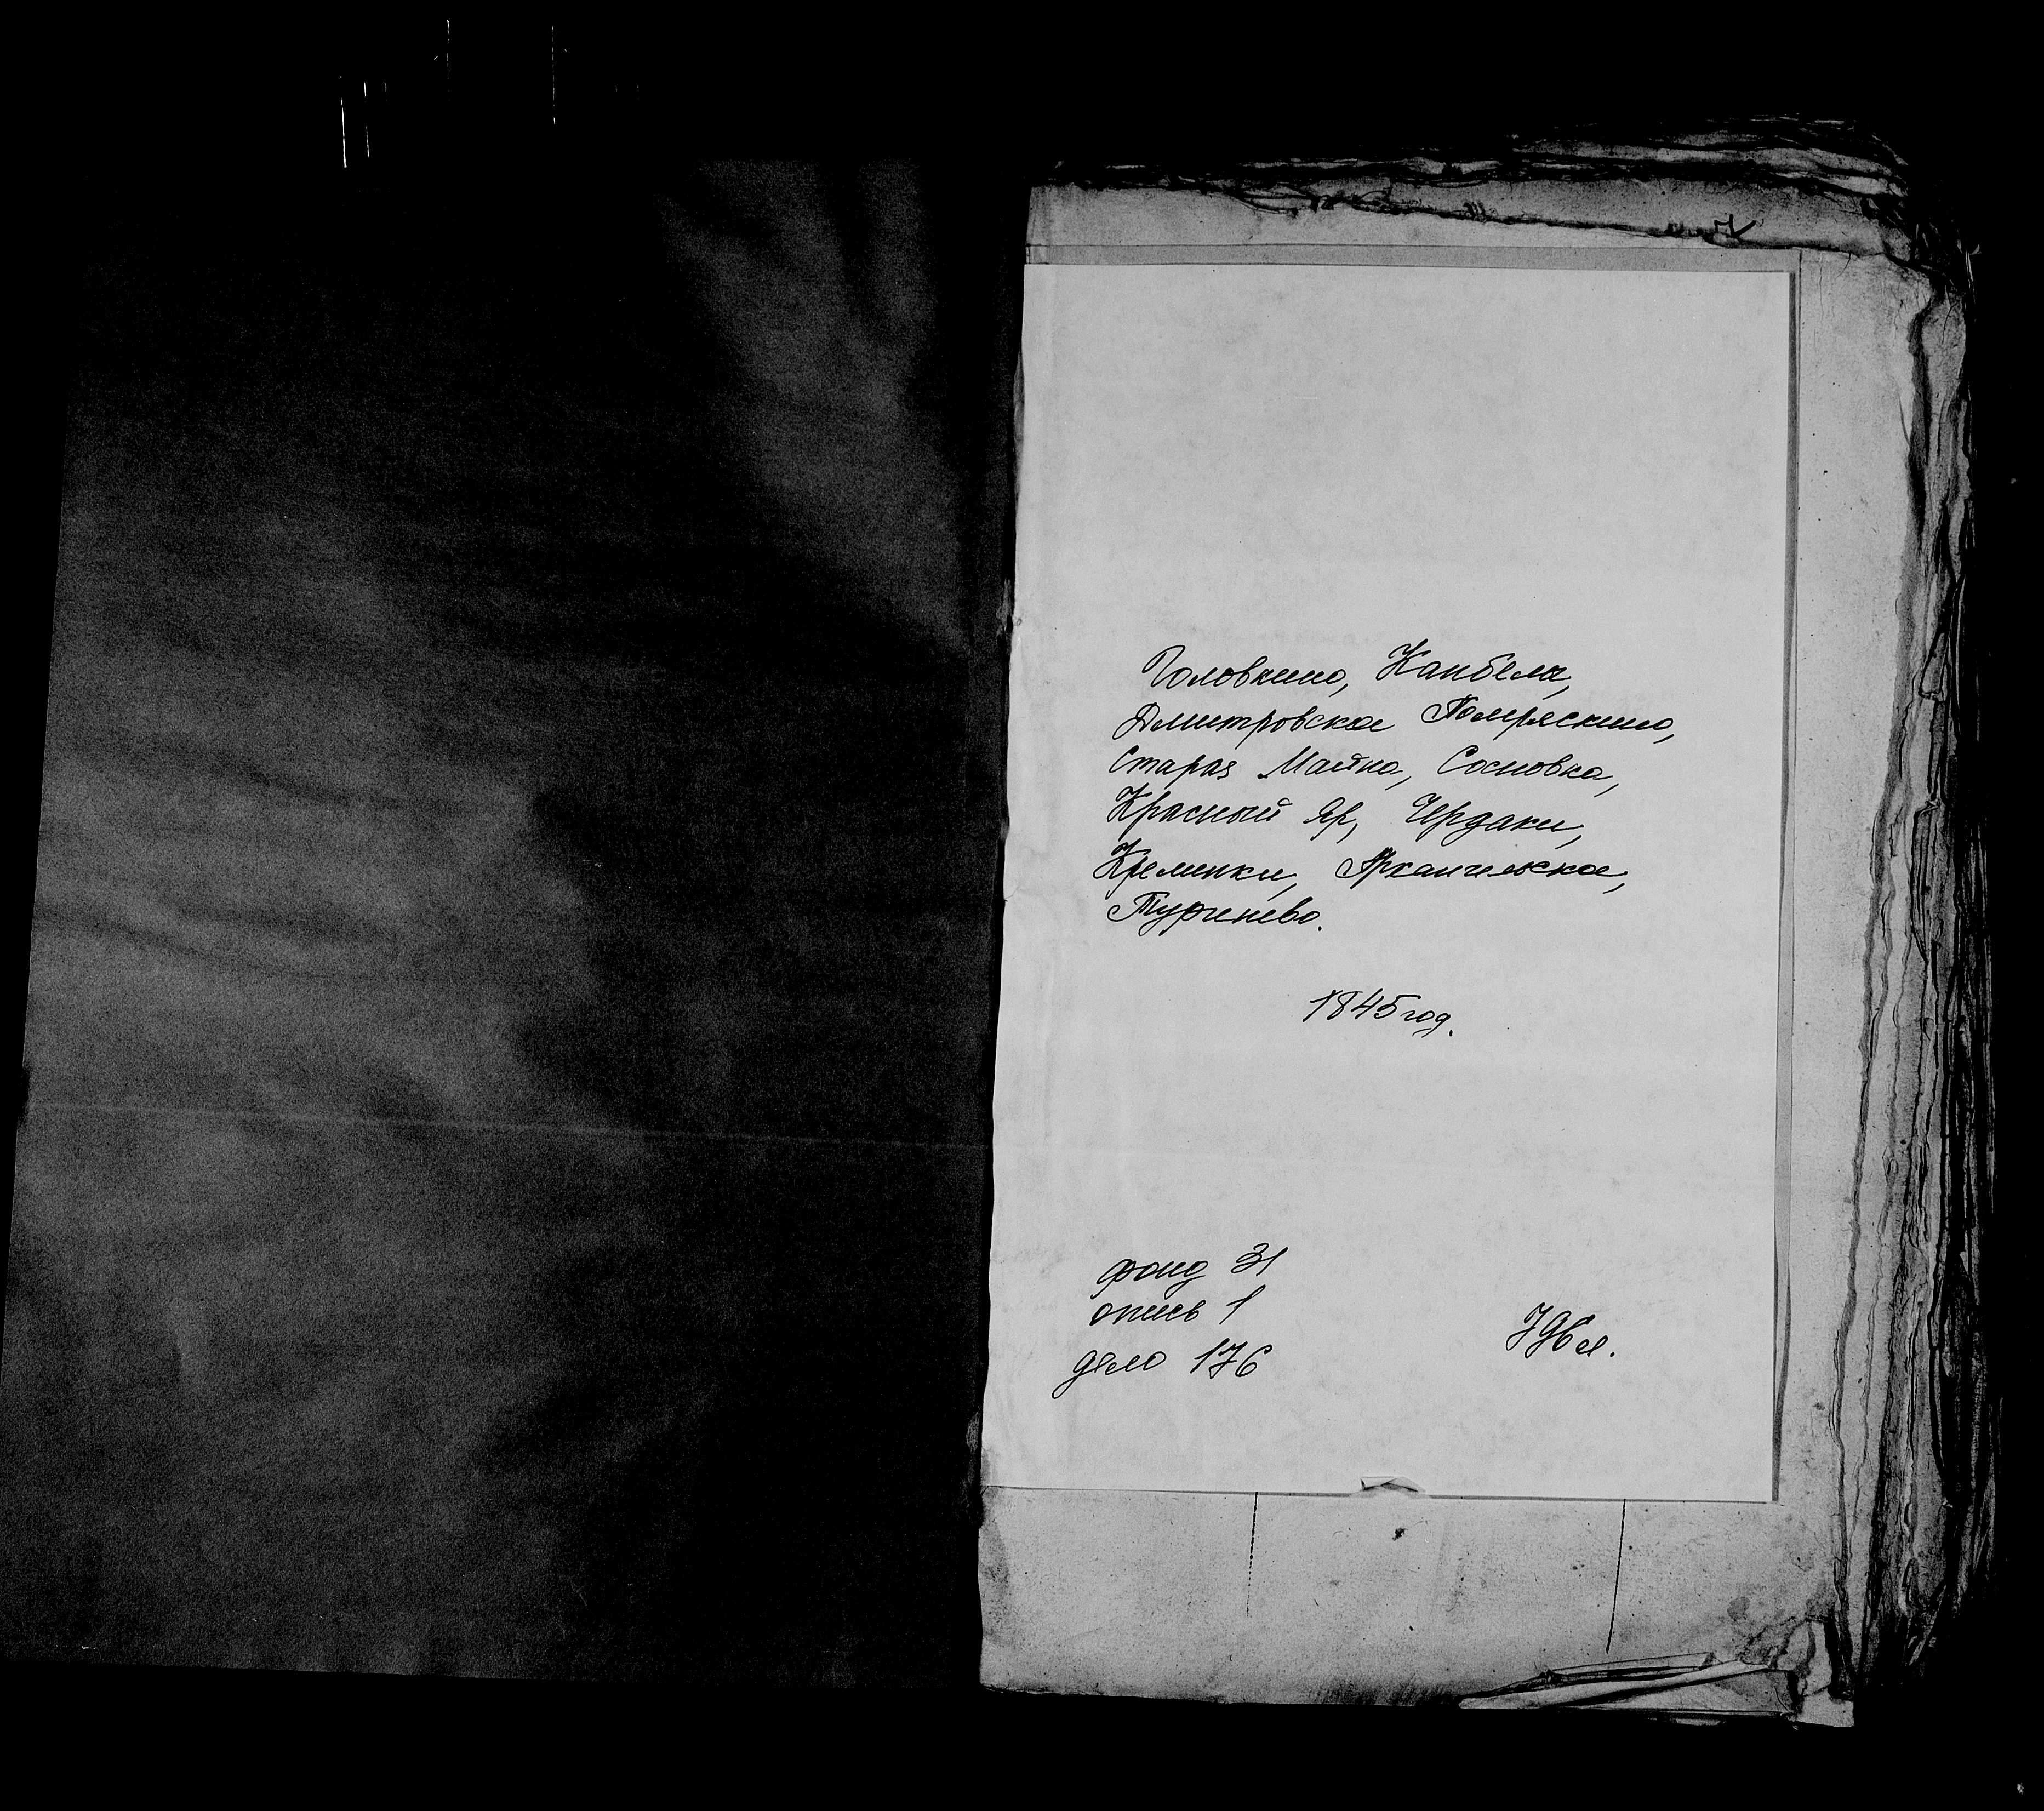 Головкино, Канбела,
Дмитровское Помряскино,
Старая Майна, Сосновка,
Красный Яр, Чердаки,
Кременки, Архангельское,
Туринево.
1845 год.
фонд 31
опись 1
дело 176
796 л.